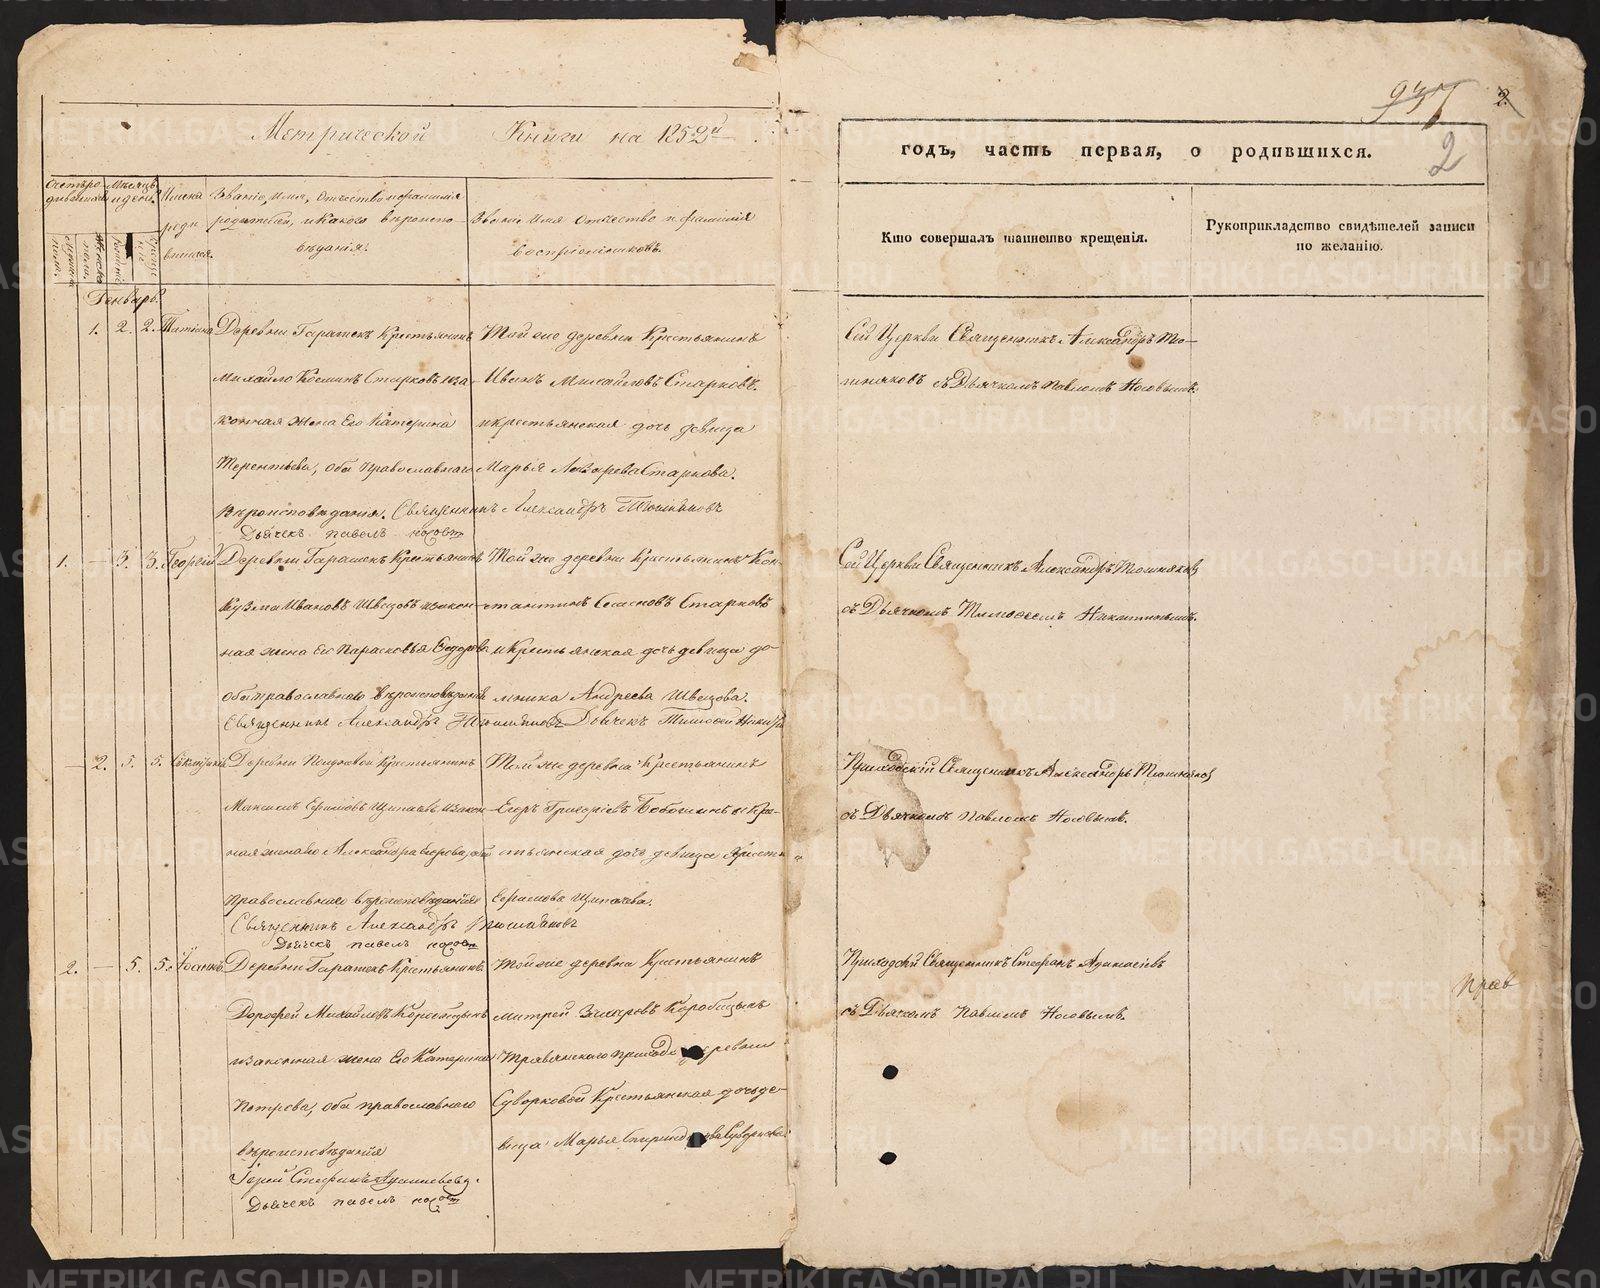 937 2.
2
Метрической Книги на 1852й
годъ, часть первая, о родившихся.
Счетъ родившихся
Мѣсяцъ и день.
Имена родившихся.
Званіе, имя, отчество и фамилія родителей, и какого вѣроисповѣданія.
Званіе, имя отчество и фамилія воспріемниковъ.
Кто совершалъ таинство крещенія.
Рукоприкладство свидѣтелей записи по желанію.
Генварь.
1. 2. 2. Татіана
Деревни Гарашекъ Крестьянинъ
Михайло Косминъ Старковъ иза-
конная жена Его Катерина
Терентьева, оба православнаго
вѣроисповѣданія. Священникъ Александръ
Дьячекъ павелъ
Той же деревни Крестьянинъ
Иванъ Михайловъ Старковъ.
и крестьянская дочь девица
Марья Лазарева Старкова.
Сей Церкви Священникъ Александръ
съ Дьячкомъ Павломъ Носовымъ.
1. — 3. 3. Георгій
Деревни Гарашекъ Крестьянинъ
Кузма Ивановъ Швецовъ изакон-
ная жена Его Парасковья
оба православнаго вѣроисповѣданія
Священникъ Александръ Дьячекъ Тимофей
Той же деревни Крестьянинъ Кон-
стантинъ Старковъ
и Крестьянская дочь девица До-
мника Андреева Швецова.
Сей Церкви Священникъ Александръ
съ Дьячкомъ Тимофеемъ Никитинымъ.
— 2. 5. 5.
Деревни Крестьянинъ
Максимъ изакон-
ная жена его Александра
Православнаго вѣроисповѣданія
Священникъ Александръ
Дьячекъ павелъ
Той же деревни Крестьянинъ
Егоръ Григорьевъ и Кре-
стьянская дочь девица
Приходскій Священникъ Александръ
съ Дьячкомъ Павломъ Носовымъ.
2. — 5. 5. Іоаннъ.
Деревни Гарашекъ Крестьянинъ
Дорофей Михайловъ Коробицынъ
изаконная жена Его Катерина
Петрова, оба православнаго
вѣроисповѣданія
Іерей Стефанъ
Дьячекъ павелъ
Той же деревни Крестьянинъ
митрей Коробицынъ
Травянскаго прихода деревни
Суворковой Крестьянская дочь де-
вица Марья
Приходскій Священникъ Стефанъ
съ Дьячкомъ Павломъ Носовымъ.
METRIKI.GASO-URAL.RU